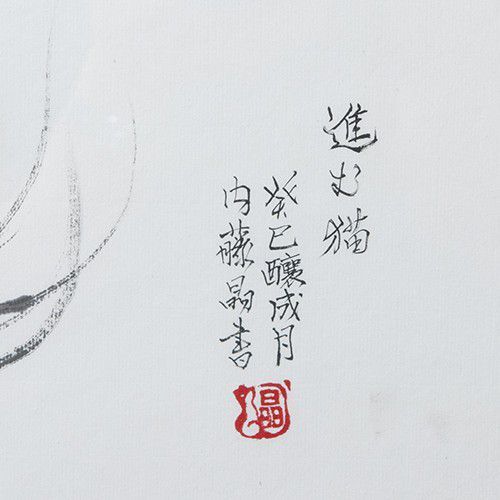 進む猫
癸巳釀成月
内藤晶書
晶